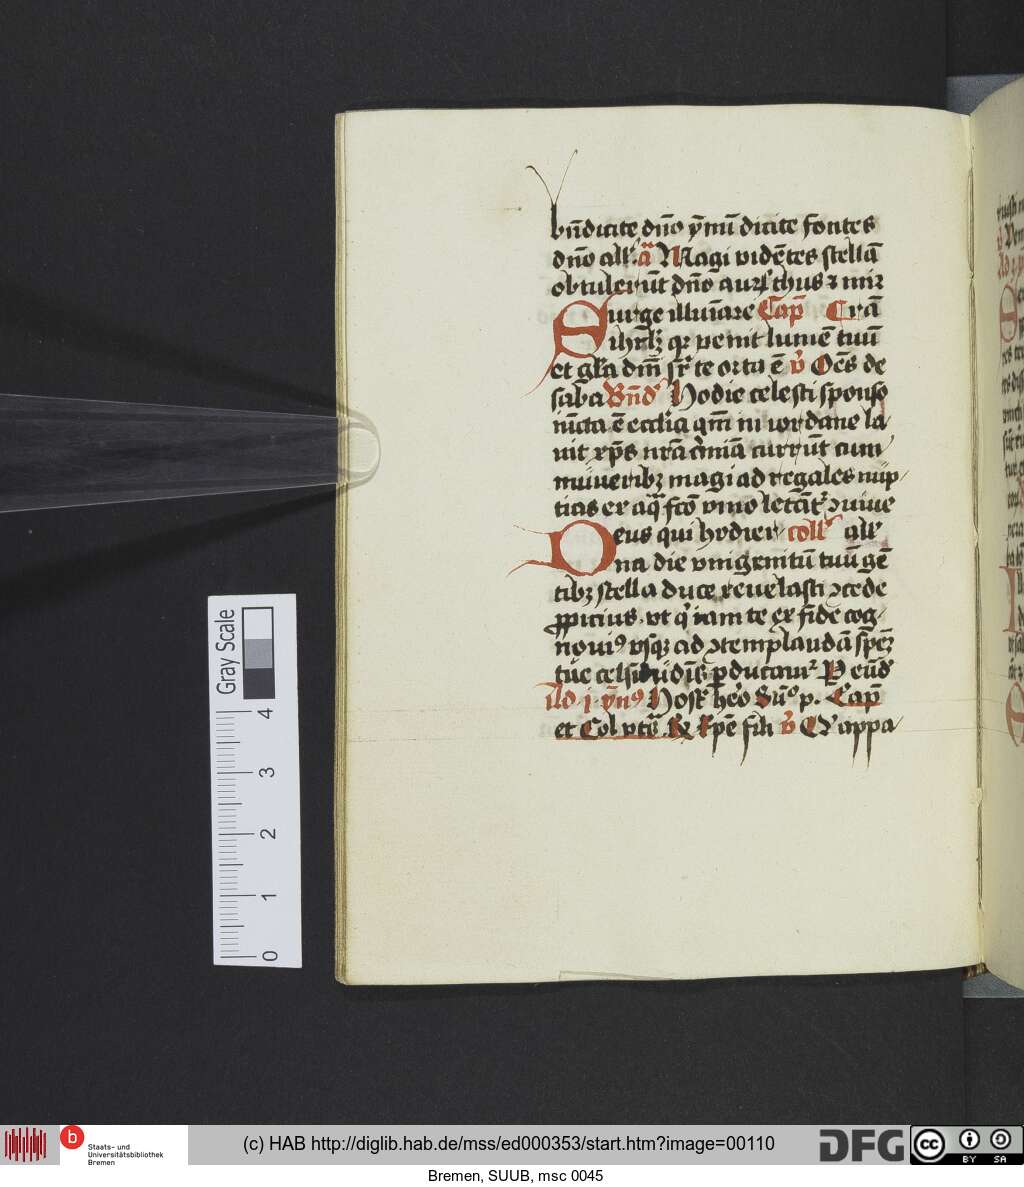 bn̄dicite dn̄o ẏmū dicite fontes
dn̄o all' a᷈ Magi vidētes stellā
obtulerūt dn̄o aurꝫ thus ⁊ mir
Surge illuīare Cap̄ Cr̄a
ihrl̄ꝫ qr venit lumē tuū
et gl̄a dn̄i sr̄ te orta ē v̉ Oēs de
saba Bn̄d' Hodie celesti sponso
iūcta ē eccl̄ia qm̄ in iordane la
uit xp̄s nr̄a c̄mīa currūt cum
muneribꝫ magi ad regales nup
tias
Deus qui hodier coll' all'
na die vnigenitū tuū gē
tibꝫ stella duce reuelasti ꝯcede
ꝓpicius vt qͥ iam te ex fide cog
nouiꝰ vsqꝫ ad ꝯtemplandā spēꝫ
tue celsitudīs ꝑducamur
Ad i ẏn̄ꝰ Host' hero Cap̄
et Col vt sͣ R̸ Xpē fili v̉ Q' appa
Gray Scale
4
3
2
1
0
b
Staats- und
Universitätsbibliothek
Bremen
(c) HAB http://diglib.hab.de/mss/ed000353/start.htm?image=00110
DFG
cc
BY SA
Bremen, SUUB, msc 0045